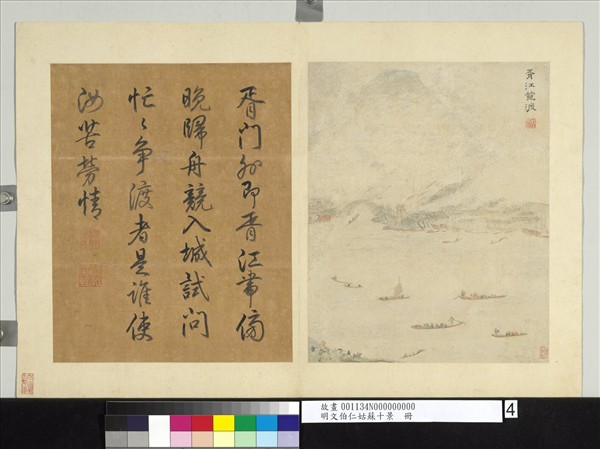 胥江競渡
胥门外即胥江傍
晚歸舟競入城試问
忙〻争渡者是誰使
汝苦勞情
故畫 001134N000000000
明文伯仁姑蘇十景 冊
4